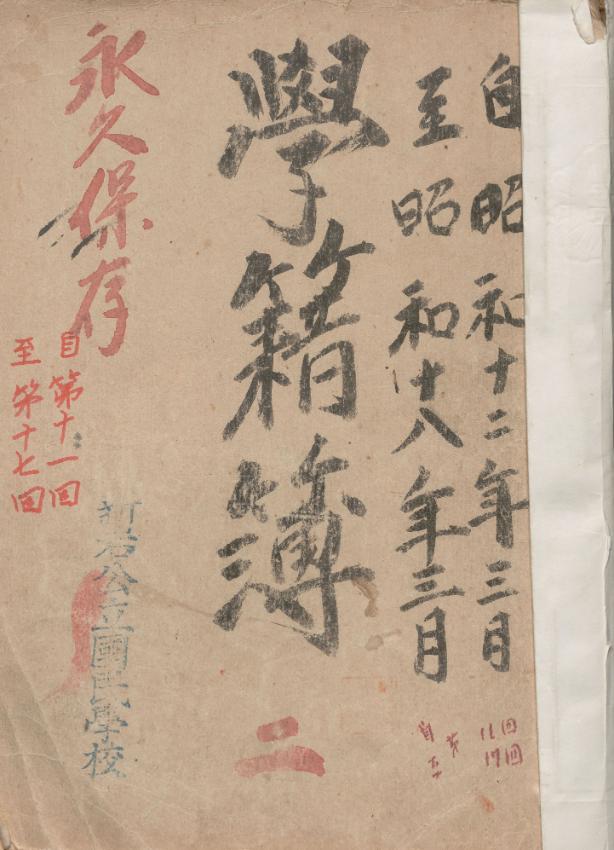 自昭和十二年三月
至昭和十八年三月
學籍簿
二
永久保存
自第十一回
至第十七回
公立國民學校
自 第 11回
至 17回